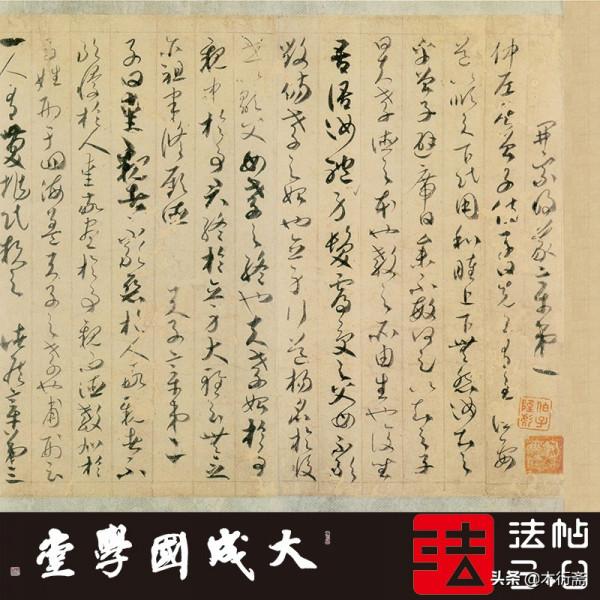 開宗明義章第一
仲尼居曾子侍子曰先王有至德要
道以順天下民用和睦上下無怨汝知之
乎曾子避席曰參不敏何足以知之子
曰夫孝德之本也教之所由生也復坐
吾語汝體身髮膚受之父母不敢
毀傷孝之始也立身行道揚名於後
世以顯父母孝之終也夫孝始於事
親中於事君終於立身大雅云無念
尔祖聿脩厥德 天子章第二
子曰愛親者不敢惡於人敬親者不
敢慢於人愛敬盡於事親而德教加於
百姓刑于四海蓋天子之孝也甫刑云
一人有慶兆民賴之 諸侯章第三
大成國學堂
法帖
头条 @木術斋